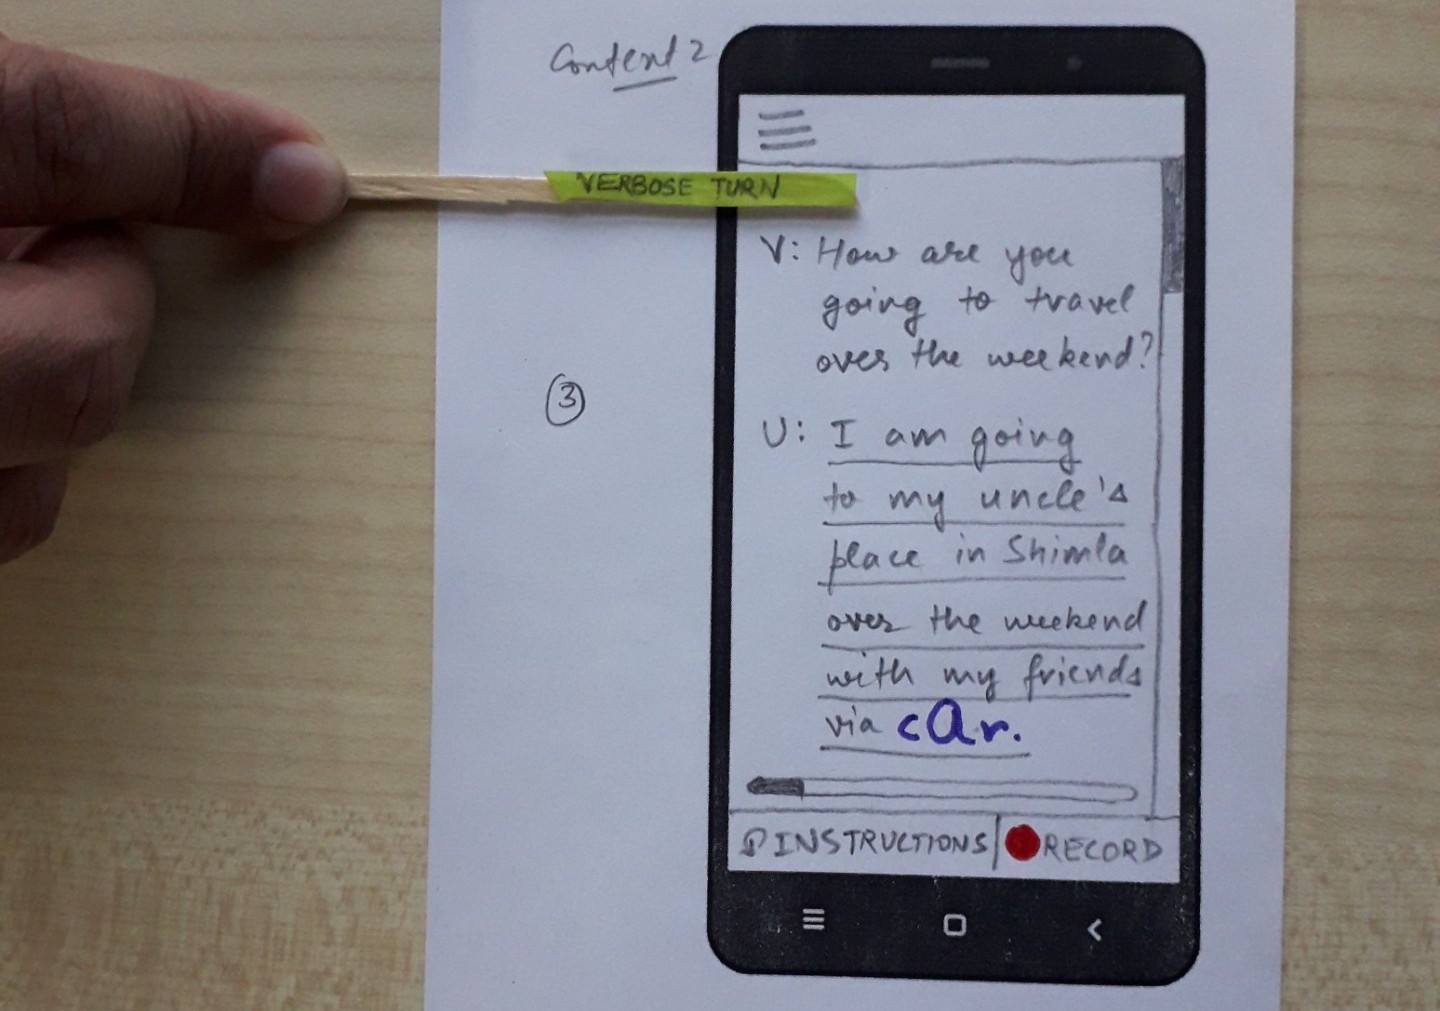 Content 2
VERBOSE TURN
V: How are you
going to travel
over the weekend?
3
U: I am going
to my uncle's
place in Shimla
over the weekend
with my friends
via car.
INSTRUCTIONS | RECORD